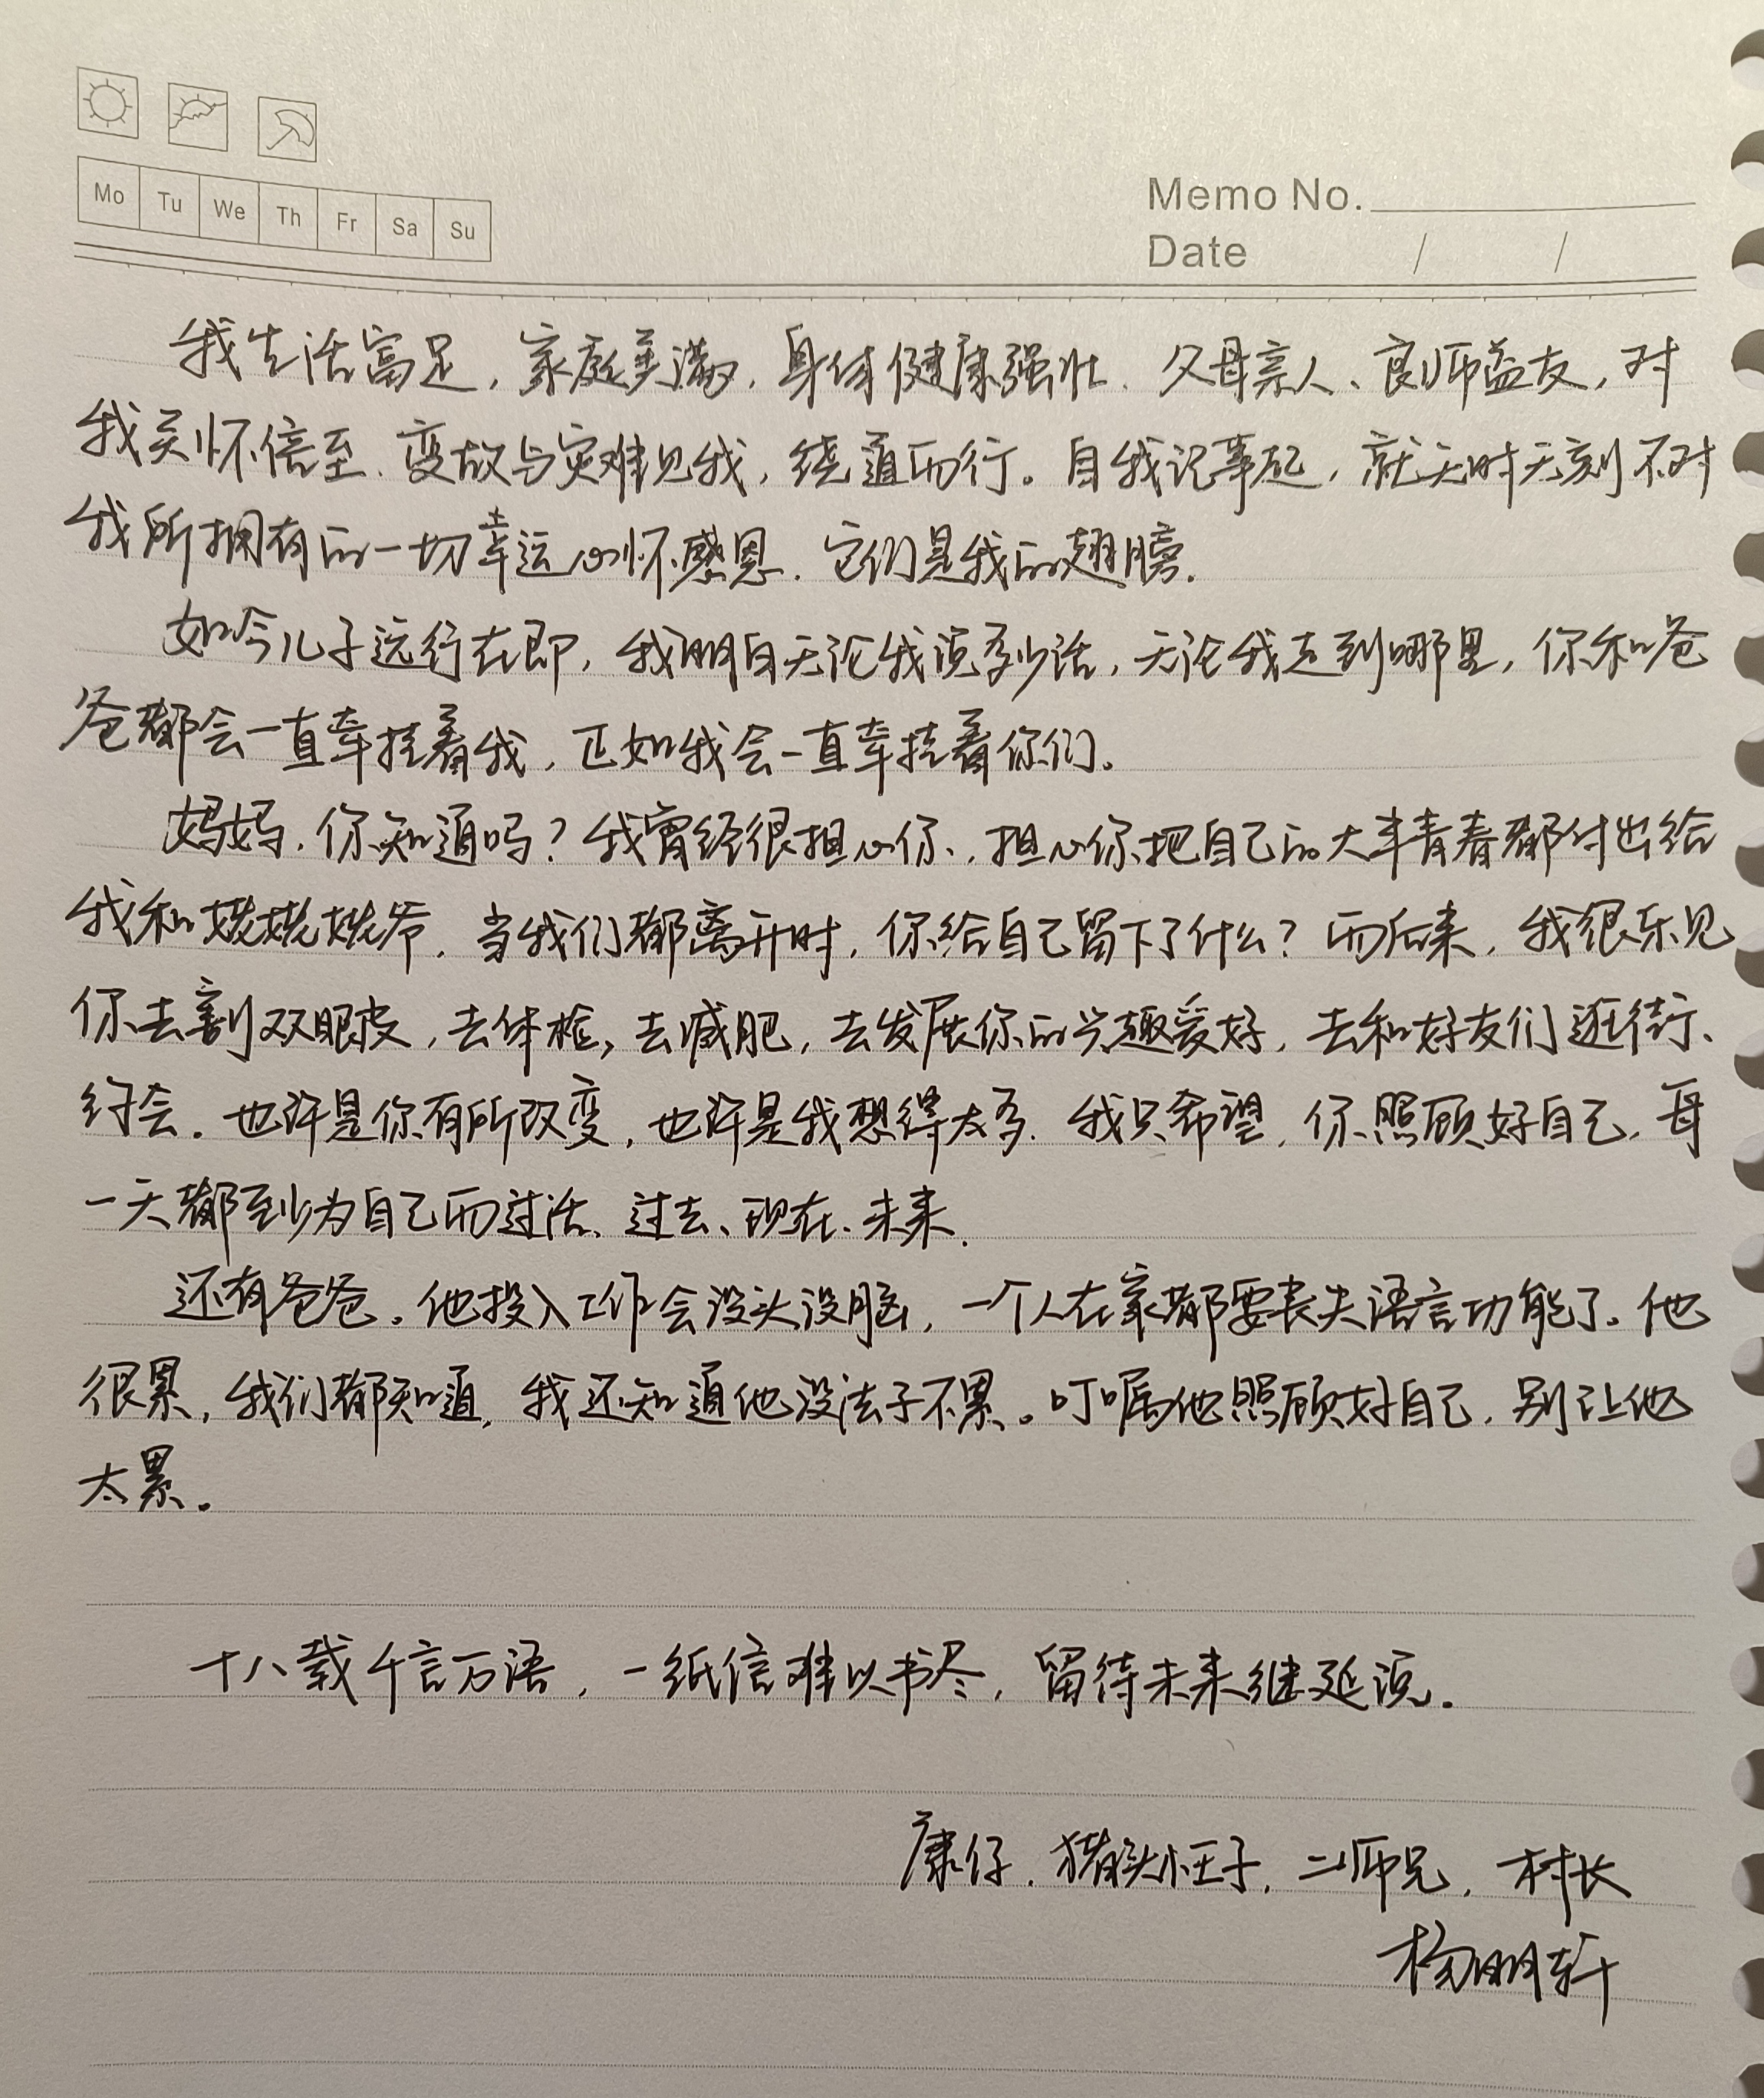 Mo Tu We Th Fr Sa Su
Memo No.
Date / /
我生活富足，家庭美满，身体健康强壮．父母亲人、良师益友，对
我关怀倍至．变故与灾难见我，绕道而行。自我记事起，就无时无刻不对
我所拥有的一切幸运心怀感恩．它们是我的翅膀．
如今儿子远行在即，我明白无论我说多少话，无论我走到哪里，你和爸
爸都会一直牵挂着我，正如我会一直牵挂着你们。
妈妈，你知道吗？我曾经很担心你，担心你把自己的大半青春都付出给
我和姥姥姥爷．当我们都离开时，你给自己留下了什么？而后来，我很乐见
你去割双眼皮，去体检，去减肥，去发展你的兴趣爱好，去和好友们逛街、
约会．也许是你有所改变，也许是我想得太多．我只希望，你照顾好自己，每
一天都至少为自己而过活、过去、现在、未来．
还有爸爸。他投入工作会没头没脑，一个人在家都要丧失语言功能了。他
很累，我们都知道，我还知道他没法子不累。叮嘱他照顾好自己，别让他
太累。
十八载千言万语，一纸信难以书尽，留待未来继延说．
康仔．猪头小王子，二师兄，村长
杨明轩